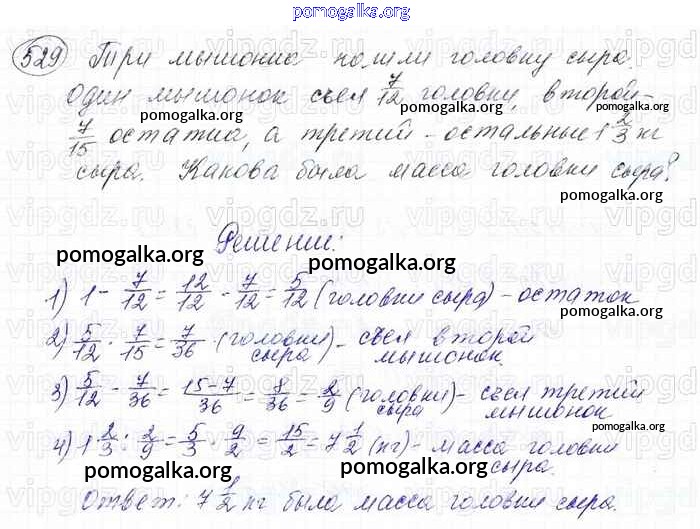 pomogalka.org
529 Три мышонка нашли головку сыра.
Один мышонок съел 7/12 головки, второй -
7/15 остатка, а третий - остальные 1 2/3 кг
сыра. Какова была масса головки сыра?
pomogalka.org pomogalka.org
pomogalka.org
Решение:
pomogalka.org pomogalka.org
1) 1 - 7/12 = 12/12 - 7/12 = 5/12 (головки сыра) - остаток
2) 5/12 · 7/15 = 7/36 (головки сыра) - съел второй мышонок.
pomogalka.org pomogalka.org
3) 5/12 - 7/36 = 15-7/36 = 8/36 = 2/9 (головки сыра) - съел третий мышонок
pomogalka.org
4) 1 2/3 : 2/9 = 5/3 · 9/2 = 15/2 = 7 1/2 (кг) - масса головки сыра.
pomogalka.org pomogalka.org
Ответ: 7 1/2 кг была масса головки сыра.
pomogalka.org